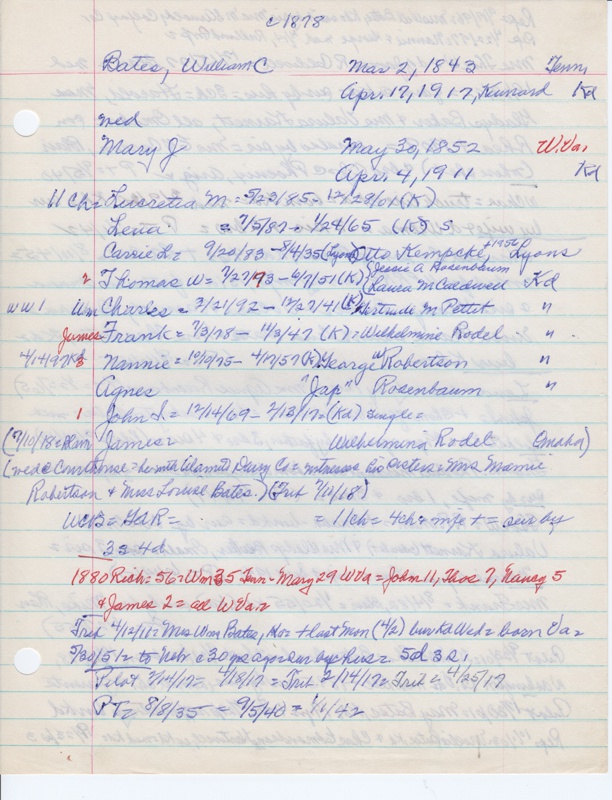 c1878
Bates, William C Mar 2, 1843 Tenn
Apr. 17, 1917, Kennard Kd
wed
Mary J May 30, 1852 W.Va,
Apr. 4, 1911 Kd
11 Ch = Lucretia M = 5/23/85 - 12/29/61 (K)
Lena = 7/5/87 - 1/24/65 (K) S
Carrie L = 9/20/83 - 8/4/35 (Lyons) Otto Kempcke, +1956 Lyons
2 Thomas W = 7/27/73 - 6/7/51 (K) (Jessie A Rosenbaum
(Laura M Caldwell Kd
WW1 Wm Charles = 3/21/92 - 12/27/41 (K) Gertrude M Pettit "
James Frank = 7/3/78 - 11/3/47 (K) = Wilhelmine Rodel "
4/14/97 Kd 3 Nannie = 10/9/75 - 4/7/57 (K) George W Robertson "
Agnes "Jap" Rosenbaum "
1 John S. = 12/14/69 - 2/13/17 = (Kd) single =
(7/10/18 = Blair James = Wilhelmina Rodel Omaha)
(wed @ Courthouse = he with Alamito Dairy Co = witnesses his sisters = Mrs Mamie
Robertson & Miss Louise Bates.) (Trib 7/11/18)
WCB = GAR = = 11ch = 4ch = inf + = sur by
3s 4d
1880 Rich = 56 = Wm 35 Tenn - Mary 29 WVa = John 11, Thos 7, Nancy 5
& James 2 = all W Va =
Trib 4/12/11 = Mrs Wm Bates, = + last Mon (4/2) buried Wed = born Va =
5/30/51 = to Nebr c 30 yrs ago = sur by hus = 5d 3s,
Pilot 2/14/17 = 4/18/17 = Trib 2/14/17 = Trib = 4/25/17
PT = 8/8/35 = 9/5/40 = 1/1/42